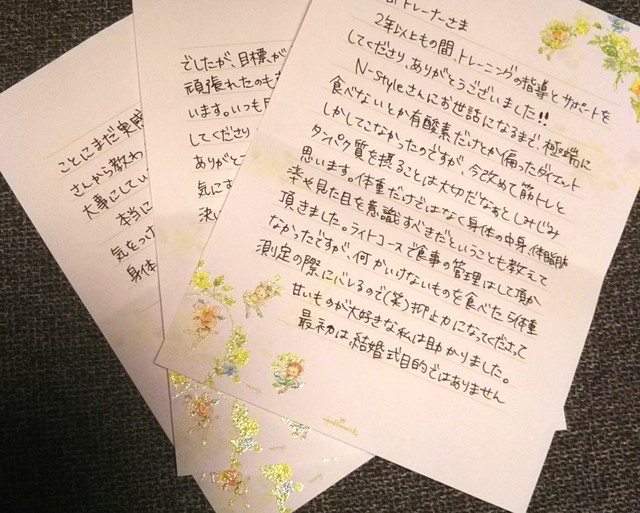 トレーナーさま
2年以上もの間、トレーニングの指導とサポートを
してくださり、ありがとうございました!!
N-Styleさんにお世話になるまで、極端に
食べないとか有酸素だけとか偏ったダイエット
しかしてこなかったのですが、今改めて筋トレと
タンパク質を摂ることは大切だなぁとしみじみ
思います。体重だけではなく身体の中身、体脂肪
率や見た目を意識すべきだということも教えて
頂きました。ライトコースで食事の管理はして頂か
なかったですが、何かいけないものを食べたら体重
測定の際にバレるので(笑)抑止力になってくださって
甘いものが大好きな私は助かりました。
最初は結婚式目的ではありません
Hallmark
でしたが、目標が
頑張れたのも
います。いつも
してくださり
ありがと
気にす
決い
ことにまだ実感
さんから教わ
大事にしてい
本当に
気をつけ
身体